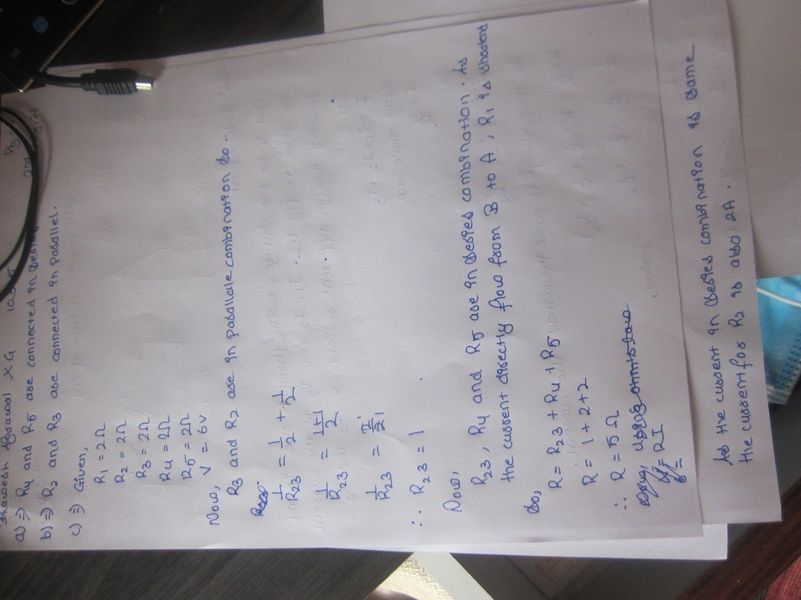 Agrawal X G
a) ⇒ R4 and R5 are connected in series
b) ⇒ R2 and R3 are connected in parallel.
c) ⇒ Given,
R1 = 2Ω
R2 = 2Ω
R3 = 2Ω
R4 = 2Ω
R5 = 2Ω
V = 6V
Now,
R3 and R2 are in parallele combination so -
1/R23 = 1/2 + 1/2
1/R23 = 1+1/2
1/R23 = 2/2 1
∴ R23 = 1
Now,
R23, R4 and R5 are in series combination. As
the current directly flow from B to A, R1 is shorted
So,
R = R23 + R4 + R5
R = 1 + 2 + 2
∴ R = 5Ω
= RI
As the current in series combination is same
the current for R2 is also 2A.